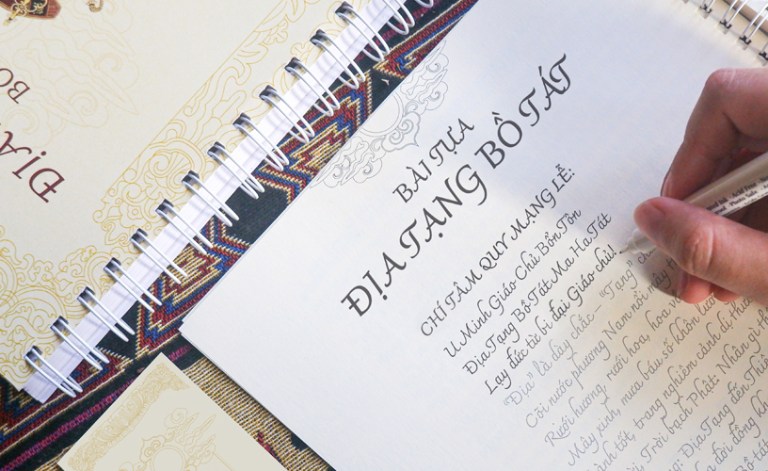 ĐỊA
BÀI TỰA
ĐỊA TẠNG BỒ TÁT
CHÍ TÂM QUY MẠNG LỄ:
U Minh Giáo Chủ Bổn Tôn
Địa Tạng Bồ Tát Ma Ha Tát
Lạy đức từ bi đại Giáo chủ!
"Địa" là dày chắc – "Tạng"
Cõi nước phương Nam nổi mây
Rưới hương, rưới hoa, hoa
Mây xinh, mưa báu số khôn
lành tốt, trang nghiêm cảnh dị
Trời bạch Phật: Nhân gì
Địa Tạng đến